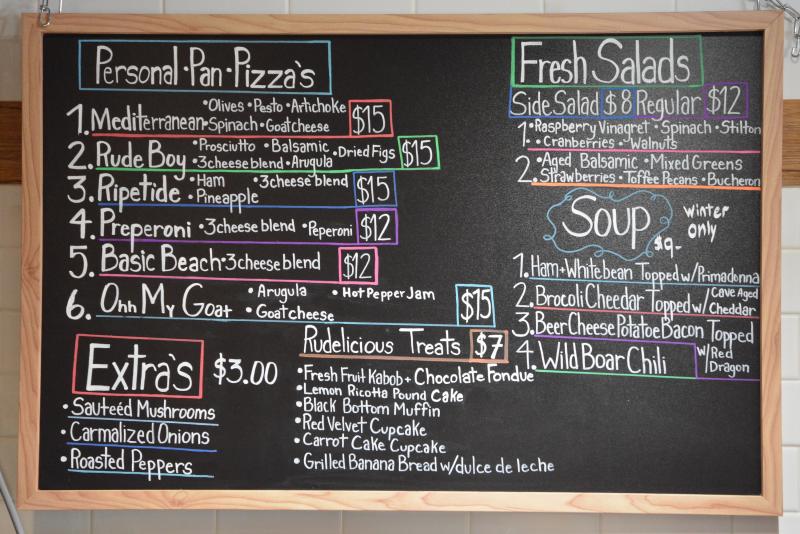 Personal·Pan·Pizza's
1. Mediterranean ·Olives ·Pesto ·Artichoke
·Spinach ·Goatcheese $15
2. Rude Boy ·Prosciutto ·Balsamic ·Dried Figs
·3cheese blend ·Arugula $15
3. Ripetide ·Ham ·3cheese blend
·Pineapple $15
4. Preperoni ·3cheese blend ·Peperoni $12
5. Basic Beach ·3cheese blend $12
6. Ohh My Goat ·Arugula ·Hot Pepper Jam
·Goatcheese $15
Extra's $3.00
·Sauteéd Mushrooms
·Carmalized Onions
·Roasted Peppers
Rudelicious Treats $7
·Fresh Fruit Kabob + Chocolate Fondue
·Lemon Ricotta Pound Cake
·Black Bottom Muffin
·Red Velvet Cupcake
·Carrot Cake Cupcake
·Grilled Banana Bread w/dulce de leche
Fresh Salads
Side Salad $8 Regular $12
1. ·Raspberry Vinagret ·Spinach ·Stilton
·Cranberries ·Walnuts
2. ·Aged Balsamic ·Mixed Greens
·Strawberries ·Toffee Pecans ·Bucheron
Soup $9- winter only
1. Ham+White bean Topped w/Primadonna
2. Brocoli Cheedar Topped w/ Cave Aged Cheddar
3. Beer Cheese Potatoe Bacon Topped w/Red Dragon
4. Wild Boar Chili